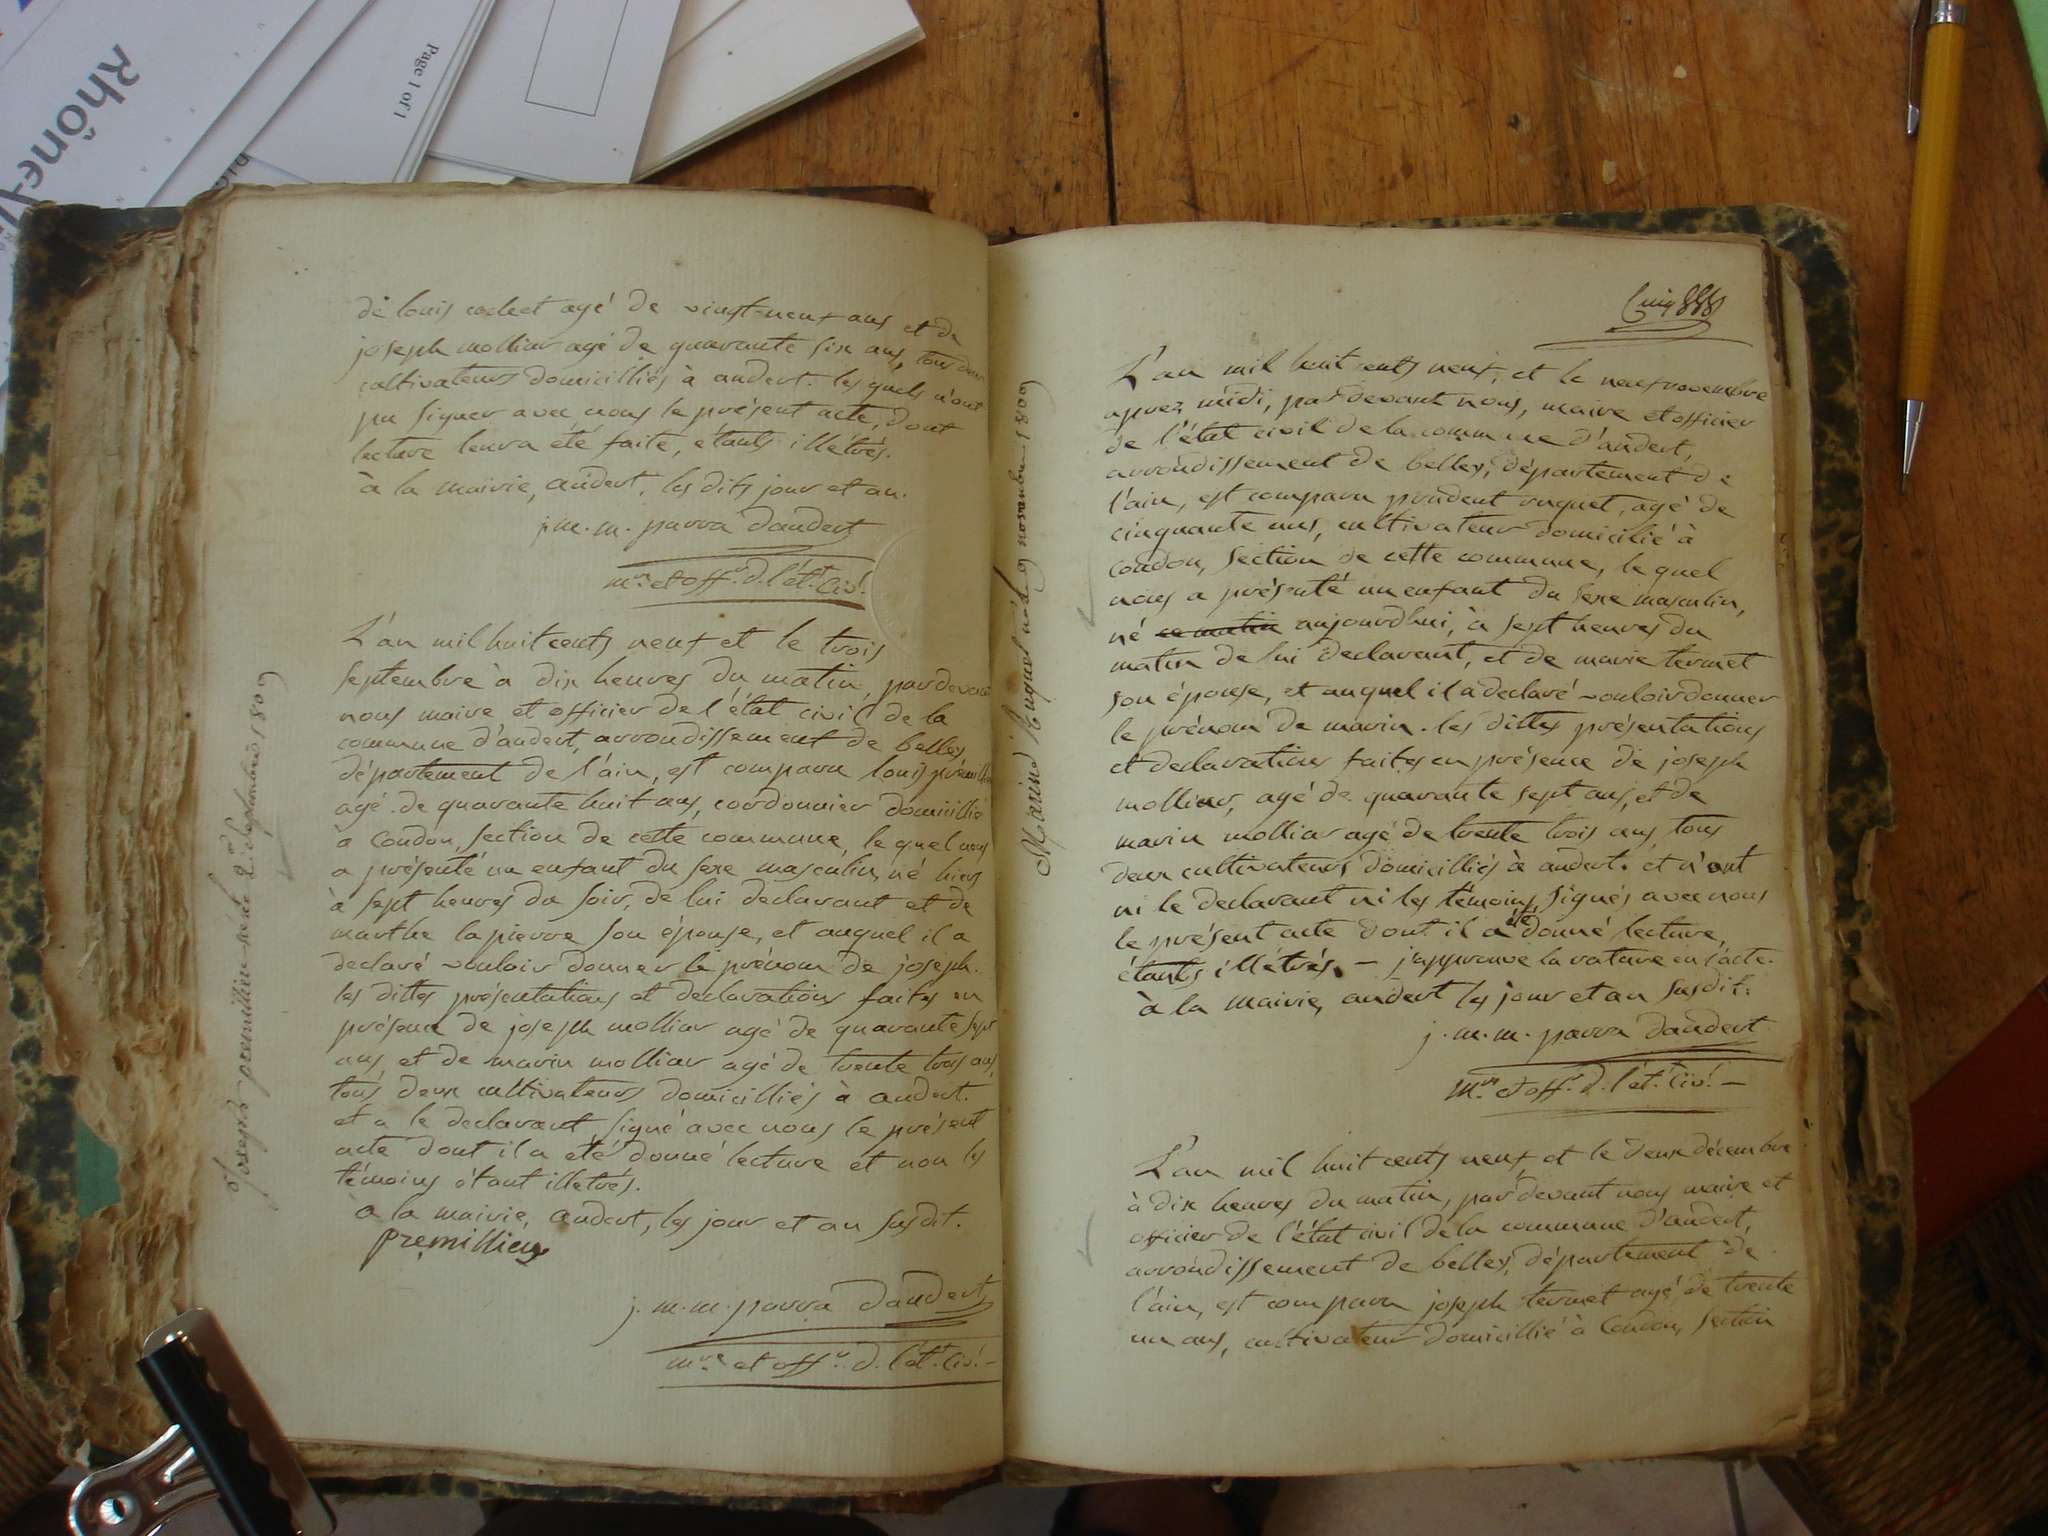 Rhône-
Page 1 of 1
de louis cochet agé de vingt-neuf ans et de
joseph molliar agé de quarante six ans, tous deux
cultivateurs domicilliés à andert. les quels n'ont
pu signer avec nous le présent acte, dont
lecture leur a été faite, étants illétrés.
à la mairie, andert, les dits jour et an.
j. m. m. parra d'andert
mre. et offr. d. l'ét.t civ.l
joseph premillieu né le 2 d. septembre 1809
L'an mil huit cents neuf et le trois
septembre à dix heures du matin, par devant
nous maire et officier de l'état civil de la
commune d'andert, arrondissement de belley
département de l'ain, est comparu louis prémillieu
agé de quarante huit ans, cordonnier domicillié
à Condon, section de cette commune, le quel nous
a présenté un enfant du sexe masculin, né hiers
à sept heures du soir, de lui declarant et de
marthe lapierre son épouse, et auquel il a
declaré vouloir donner le prénom de joseph.
les dittes présentations et declarations faites en
présence de joseph molliar agé de quarante sept
ans, et de marin molliar agé de trente trois ans,
tous deux cultivateurs domicilliés à andert.
et a le declarant signé avec nous le présent
acte dont il a été donné lecture et non les
témoins étant illetrés.
à la mairie, andert, les jour et an susdit.
premillieu
j. m. m. parra d'andert
mre. et offr. d. l'ét.t civ.l —
Marin Ruquet né le 9 novembre 1809
L'an mil huit cents neuf, et le neuf novembre
aprez midi, par devant nous, maire et officier
de l'état civil de la commune d'andert,
arrondissement de belley, département de
l'ain, est comparu prudent ruquet, agé de
cinquante ans, cultivateur domicilié à
condon, section de cette commune, le quel
nous a présenté un enfant du sexe masculin,
né ce matin aujourdhui, à sept heures du
matin de lui declarant, et de marie termet
son épouse, et auquel il a declaré vouloir donner
le prénom de marin. les dittes présentations
et declarations faites en présence de joseph
molliar, agé de quarante sept ans, et de
marin molliar agé de trente trois ans, tous
deux cultivateurs domicilliés à andert. et n'ont
ni le declarant ni les témoins signés avec nous
le présent acte dont il a été donné lecture,
étants illétrés. — japprouve la rature en l'acte.
à la mairie, andert les jour et an susdit.
j. m. m. parra d'andert
mre. et offr. d. l'ét.t civ.l —
L'an mil huit cents neuf, et le deux décembre
à dix heures du matin, par devant nous maire et
officier de l'état civil de la commune d'andert,
arrondissement de belley, département de
l'ain, est comparu joseph termet agé de trente
un ans, cultivateur domicillié à Condon, section